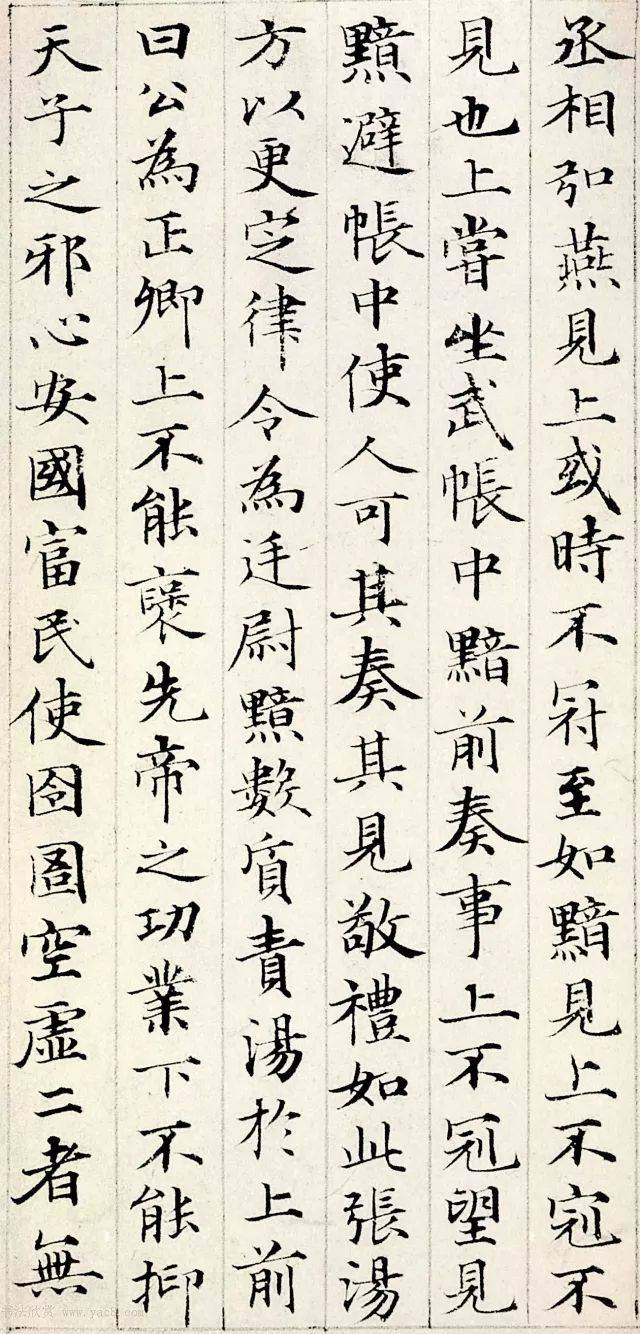 丞相弘燕見上或時不冠至如黯見上不冠不
見也上嘗坐武帳中黯前奏事上不冠望見
黯避帳中使人可其奏其見敬禮如此張湯
方以更定律令為廷尉黯數質責湯於上前
曰公為正卿上不能褒先帝之功業下不能抑
天子之邪心安國富民使囹圄空虛二者無
书法欣赏 www.yac8.com